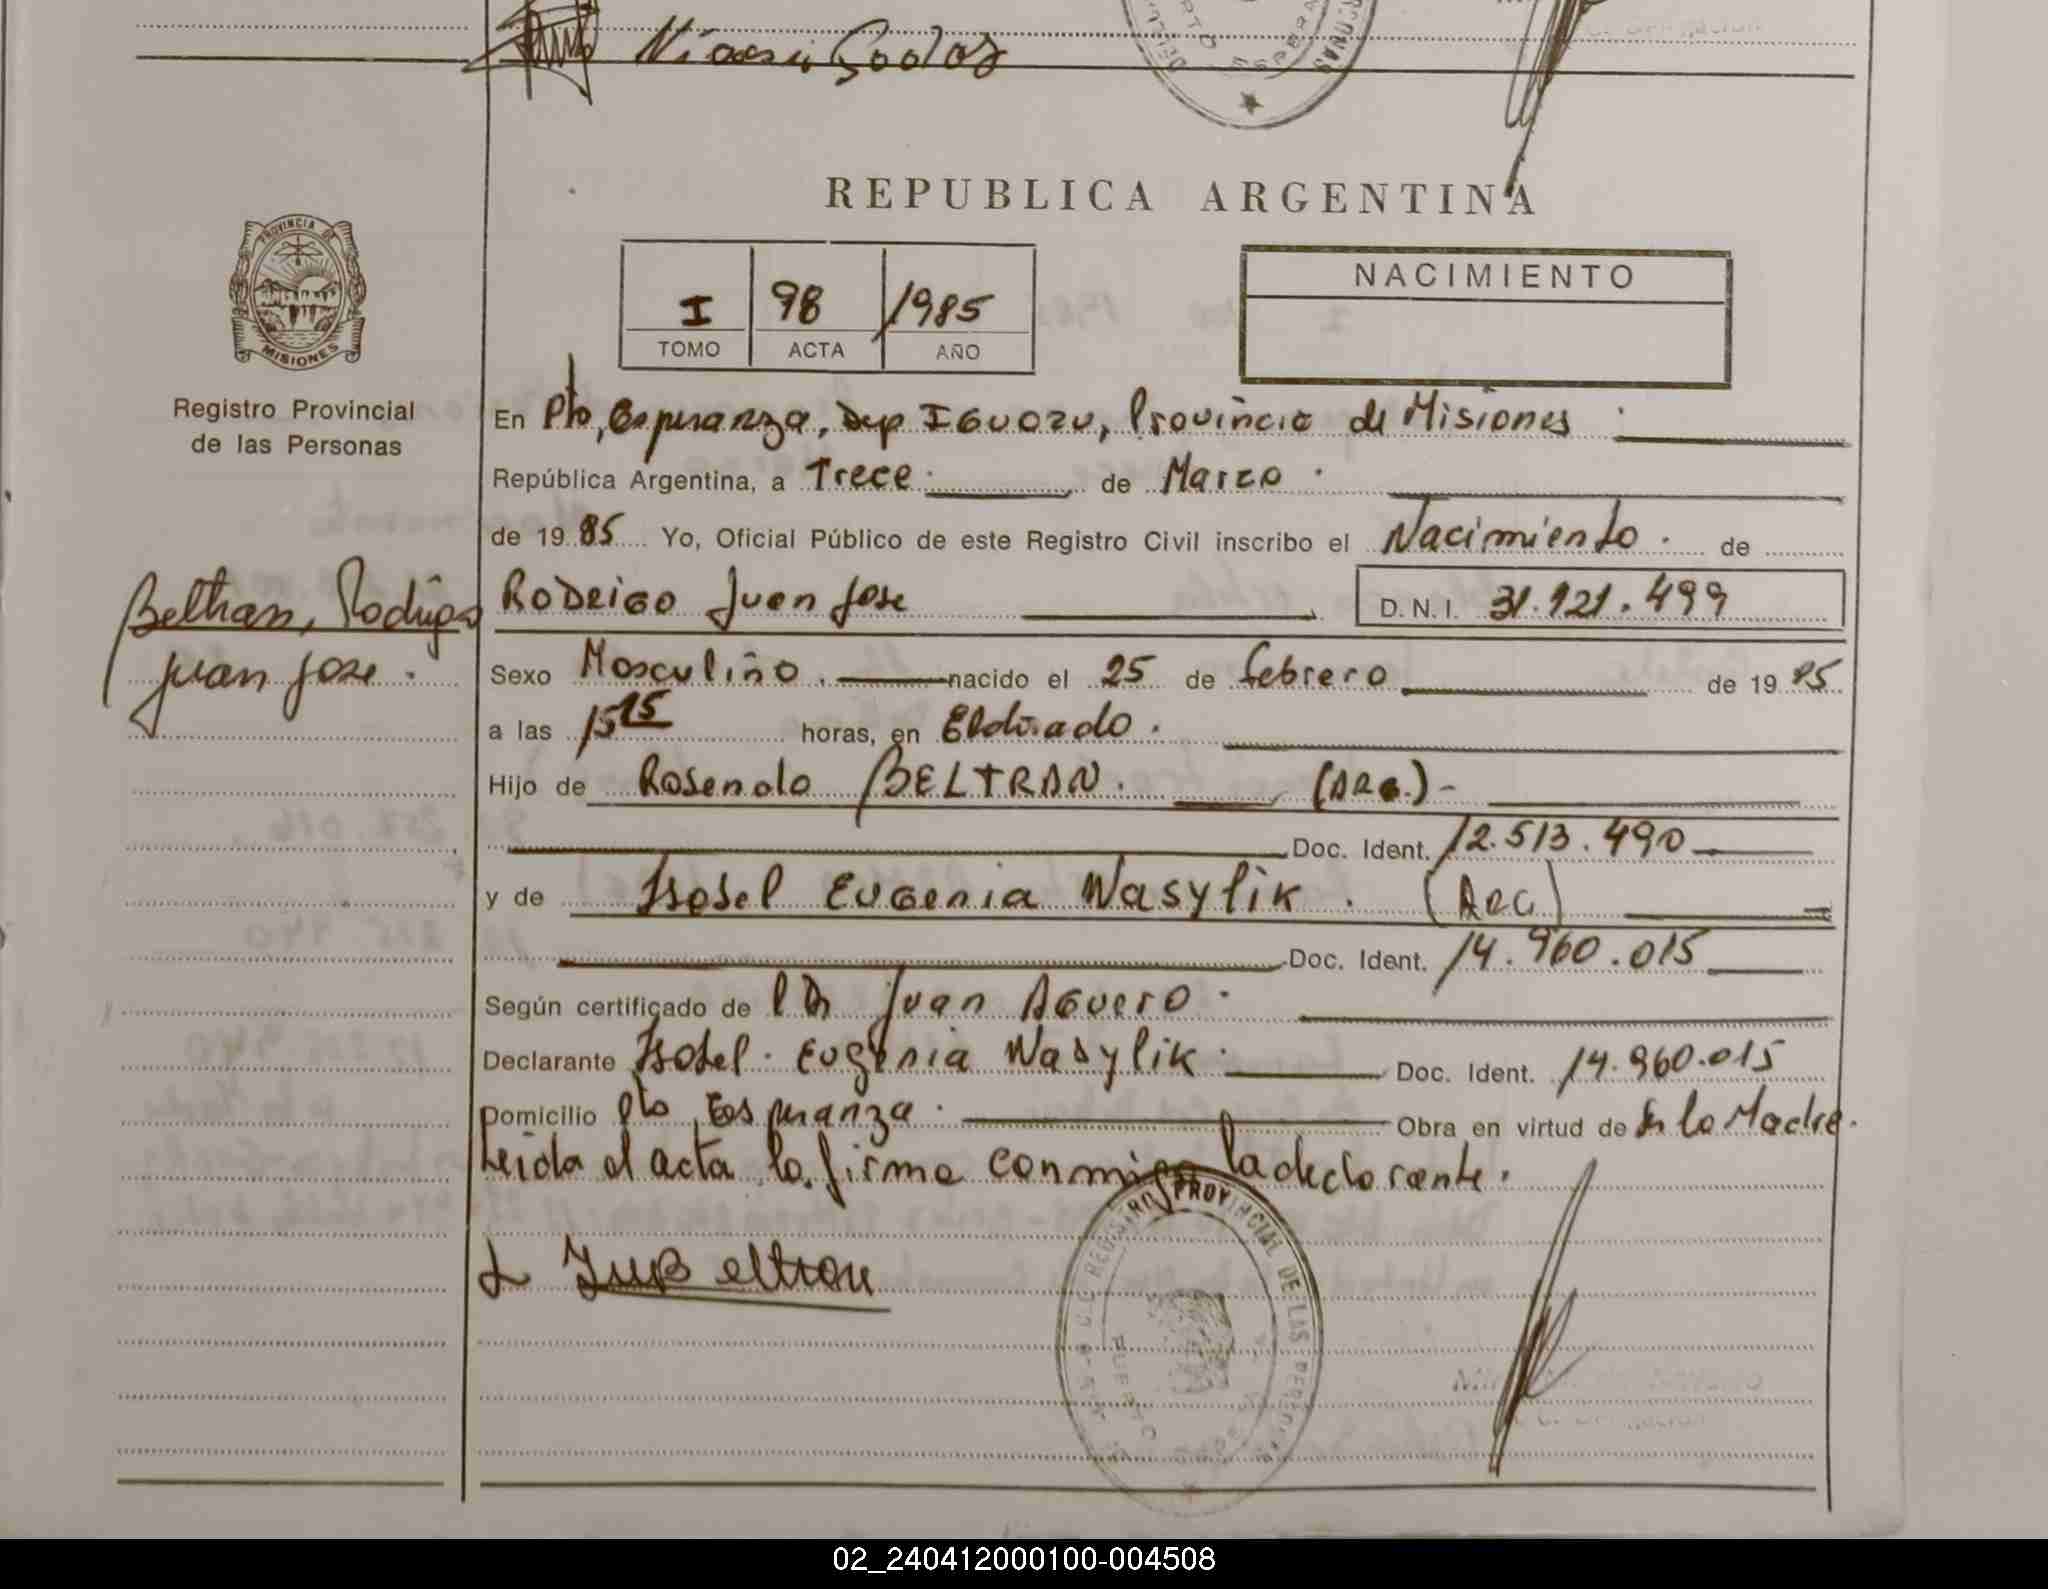 REPUBLICA ARGENTINA
PROVINCIA DE
MISIONES
Registro Provincial
de las Personas
I 98 1985
TOMO ACTA AÑO
NACIMIENTO
En Pto, Esperanza, Dep IGUAZU, Provincia de Misiones
República Argentina, a Trece de Marzo
de 1985 Yo, Oficial Público de este Registro Civil inscribo el Nacimiento de
Beltran, Rodrigo
Juan Jose
RODRIGO Juan Jose D.N.I. 31.121.499
Sexo Masculino nacido el 25 de febrero de 1985
a las 15 15 horas, en Eldorado
Hijo de Rosendo BELTRAN (ARG.)
Doc. Ident. 12.513.490
y de Isabel Eugenia Wasylik (ARG)
Doc. Ident. 14.960.015
Según certificado de Juan Aguero
Declarante Isabel Eugenia Wasylik Doc. Ident. 14.960.015
Domicilio Pto Esperanza Obra en virtud de la Madre
Leida el acta la firma conmigo la declarante.
Beltran
REGISTRO PROVINCIAL DE LAS PERSONAS
PUERTO
02_240412000100-004508